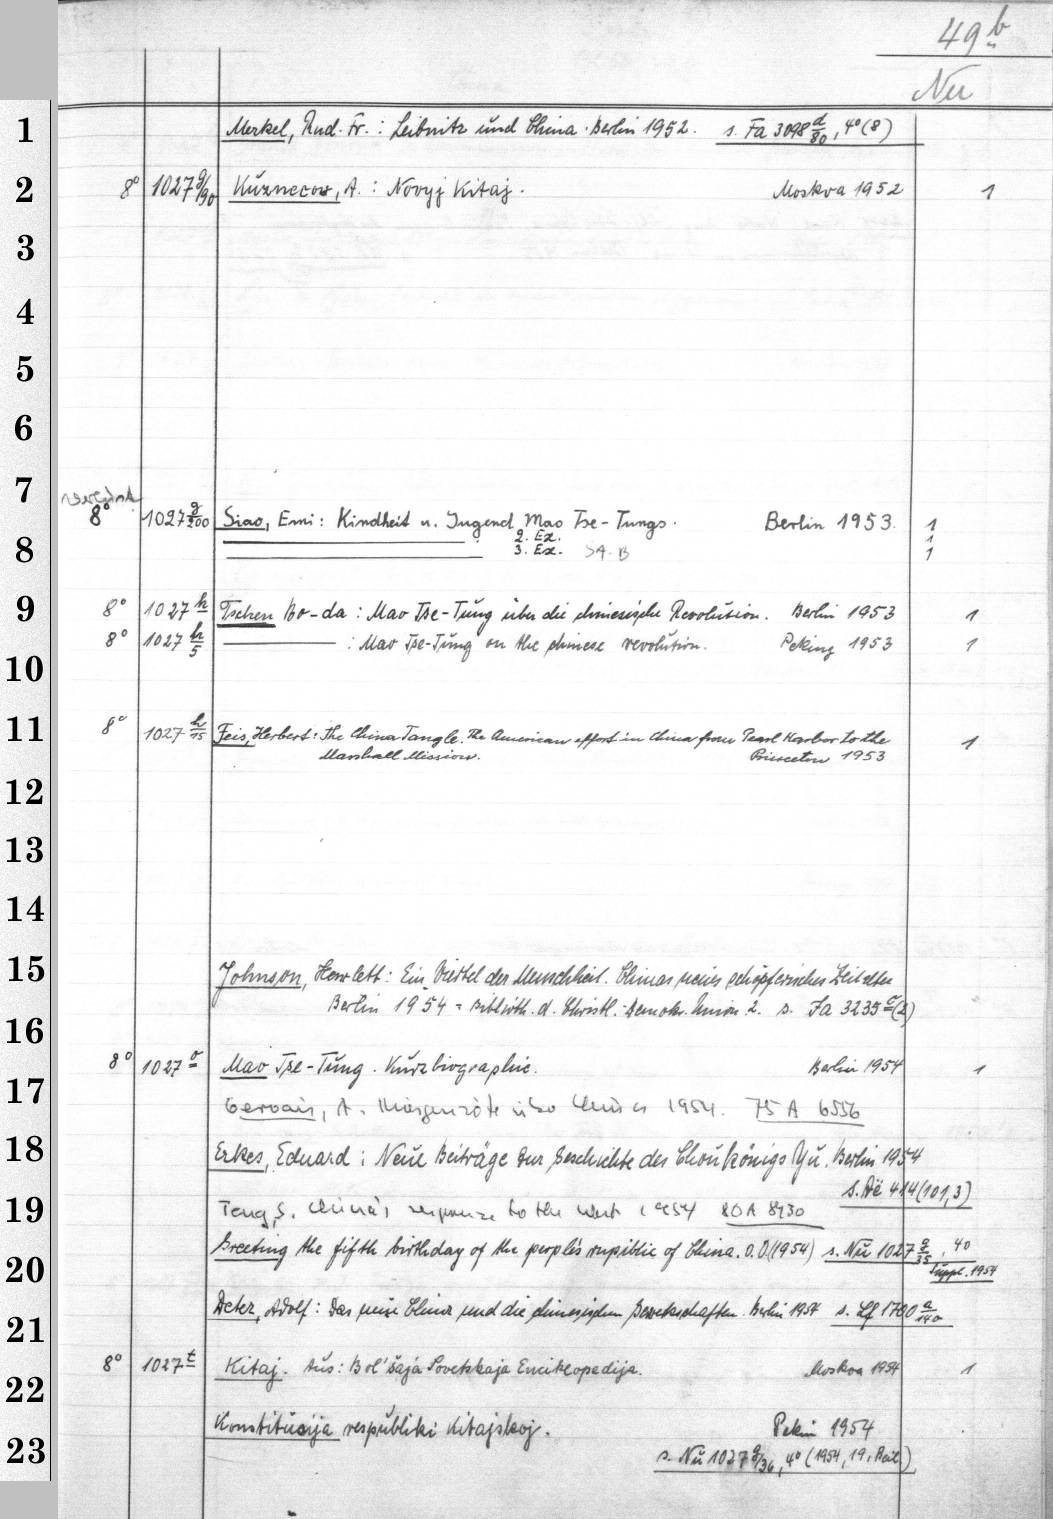 49 b
Nu
1 Merkel, Rud. Fr.: Leibnitz und China. Berlin 1952. s. Fa 3098 d/80, 4° (8)
2 8° 1027 g/90 Kuznecow, A.: Novyj Kitaj. Moskva 1952 1
3
4
5
6
7
8° 1027 g/200 Siao, Emi: Kindheit u. Jugend Mao Tse-Tungs. Berlin 1953. 1
2. Ex. 1
8 3. Ex. 1
9 8° 1027 h Tschen Bo-da: Mao Tse-Tung über die chinesische Revolution. Berlin 1953 1
8° 1027 h/5 : Mao Tse-Tung on the chinese revolution. Peking 1953 1
10
11 8° 1027 h/15 Feis, Herbert: The China Tangle. The American effort in China from Pearl Harbor to the 1
Marshall Mission. Princeton 1953
12
13
14
15 Johnson, Hewlett: Ein Viertel der Menschheit. Chinas neues schöpferisches Zeitalter
Berlin 1954 = Biblioth. d. Christl.-Demokr. Union 2. s. Fa 3235 (2)
16
8° 1027 o Mao Tse-Tung. Kurzbiographie. Berlin 1954 1
17 Gervais, A. Morgenröte über China 1954. 75 A 6556
18 Erkes, Eduard: Neue Beiträge zur Geschichte des Choukönigs Yu. Berlin 1954
s. Aë 414 (101,3)
19 Teng, S. China's response to the West 1954 20 A 8930
Greeting the fifth birthday of the people's rupiblic of China. O.O. (1954) s. Nu 1027 g/35, 4°
20 Suppl. 1954
Deter, Adolf: Das neue China und die chinesischen Gewerkschaften. Berlin 1954 s. Lf 1700 a/140
21
8° 1027 t Kitaj. Aus: Bol'šaja Sovetskaja Enciklopedija. Moskva 1954 1
22
Konstitucija respubliki Kitajskoj. Pekin 1954
23 s. Nu 1027 g/36, 4° (1954, 19, Beil.)